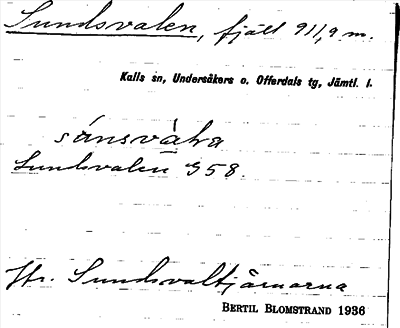 Sundsvalen, fjäll 911,9 m.
Kalls sn, Undersåkers o. Offerdals tg, Jämtl. l.
súnsvàḷra
Sundsvalen G58.
Jfr. Sundsvaltjärnarna
BERTIL BLOMSTRAND 1936